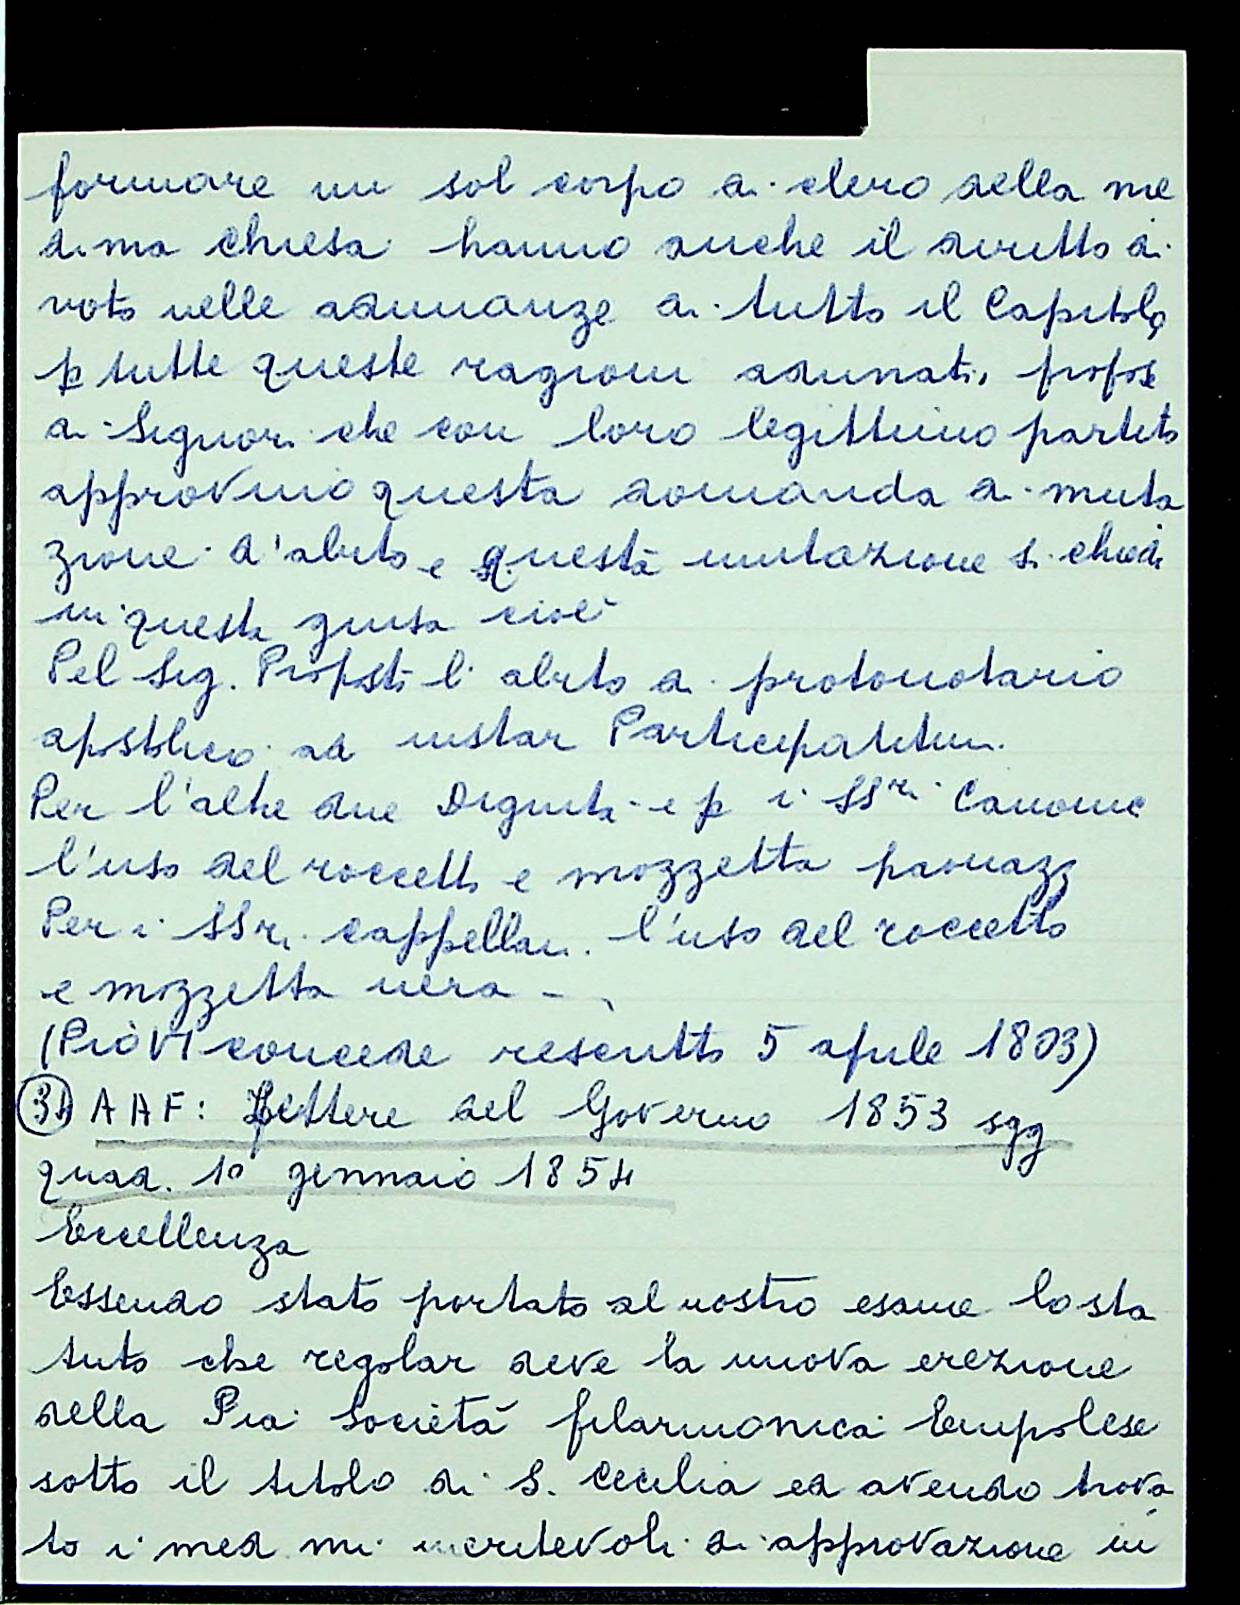 formare un sol corpo di clero della me
dima chiesa hanno anche il diritto di
voto nelle adunanze di tutto il Capitolo,
p tutte queste ragioni adunati, propose
ai Signori che con loro legittimo partito
approvino questa domanda di muta
zione d'abito e questa mutazione si chiede
in questa guisa cioè
Pel Sig. Propsto l'abito di protonotario
apostolico ad instar Participatitium.
Per l'altre due Dignità e p i SSri Canonic
l'uso del roccetto e mozzetta paonazz
Per i SSri. cappellani. l'uso del roccetto
e mozzetta nera -
(Pio VI concede rescritto 5 aprile 1803)
AAF: Lettere del Governo 1853 sgg
quad. 1º gennaio 1854
Eccellenza
Essendo stato portato al nostro esame lo sta
tuto che regolar deve la nuova erezione
della Pia Società filarmonica Empolese
sotto il titolo di S. Cecilia ed avendo trova
to i med mi meritevoli di approvazione in